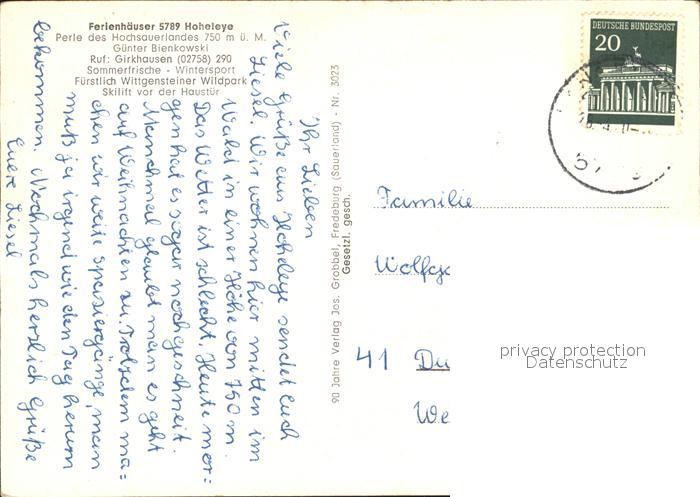 Ferienhäuser 5789 Hoheleye
Perle des Hochsauerlandes 750 m ü. M.
Günter Bienkowski
Ruf: Girkhausen (02758) 290
Sommerfrische - Wintersport
Fürstlich Wittgensteiner Wildpark
Skilift vor der Haustür
Ihr Lieben
Viele Grüße aus Hoheleye sendet Euch
Liesel. Wir wohnen hier mitten im
Wald in einer Höhe von 750 m.
Das Wetter ist schlecht. Heute mor=
gen hat es sogar noch geschneit.
Manchmal glaubt man es geht
auf Weihnachten zu. Trotzdem ma=
chen wir weite Spaziergänge, man
muß ja irgend wie den Tag herum
bekommen. Nochmals herzlich Grüße
Euere Liesel
90 Jahre Verlag Jos. Grobbel, Fredeburg (Sauerland) - Nr. 3023
Gesetzl. gesch.
DEUTSCHE BUNDESPOST
20
Familie
Wolfga
41 Du
We
privacy protection
Datenschutz